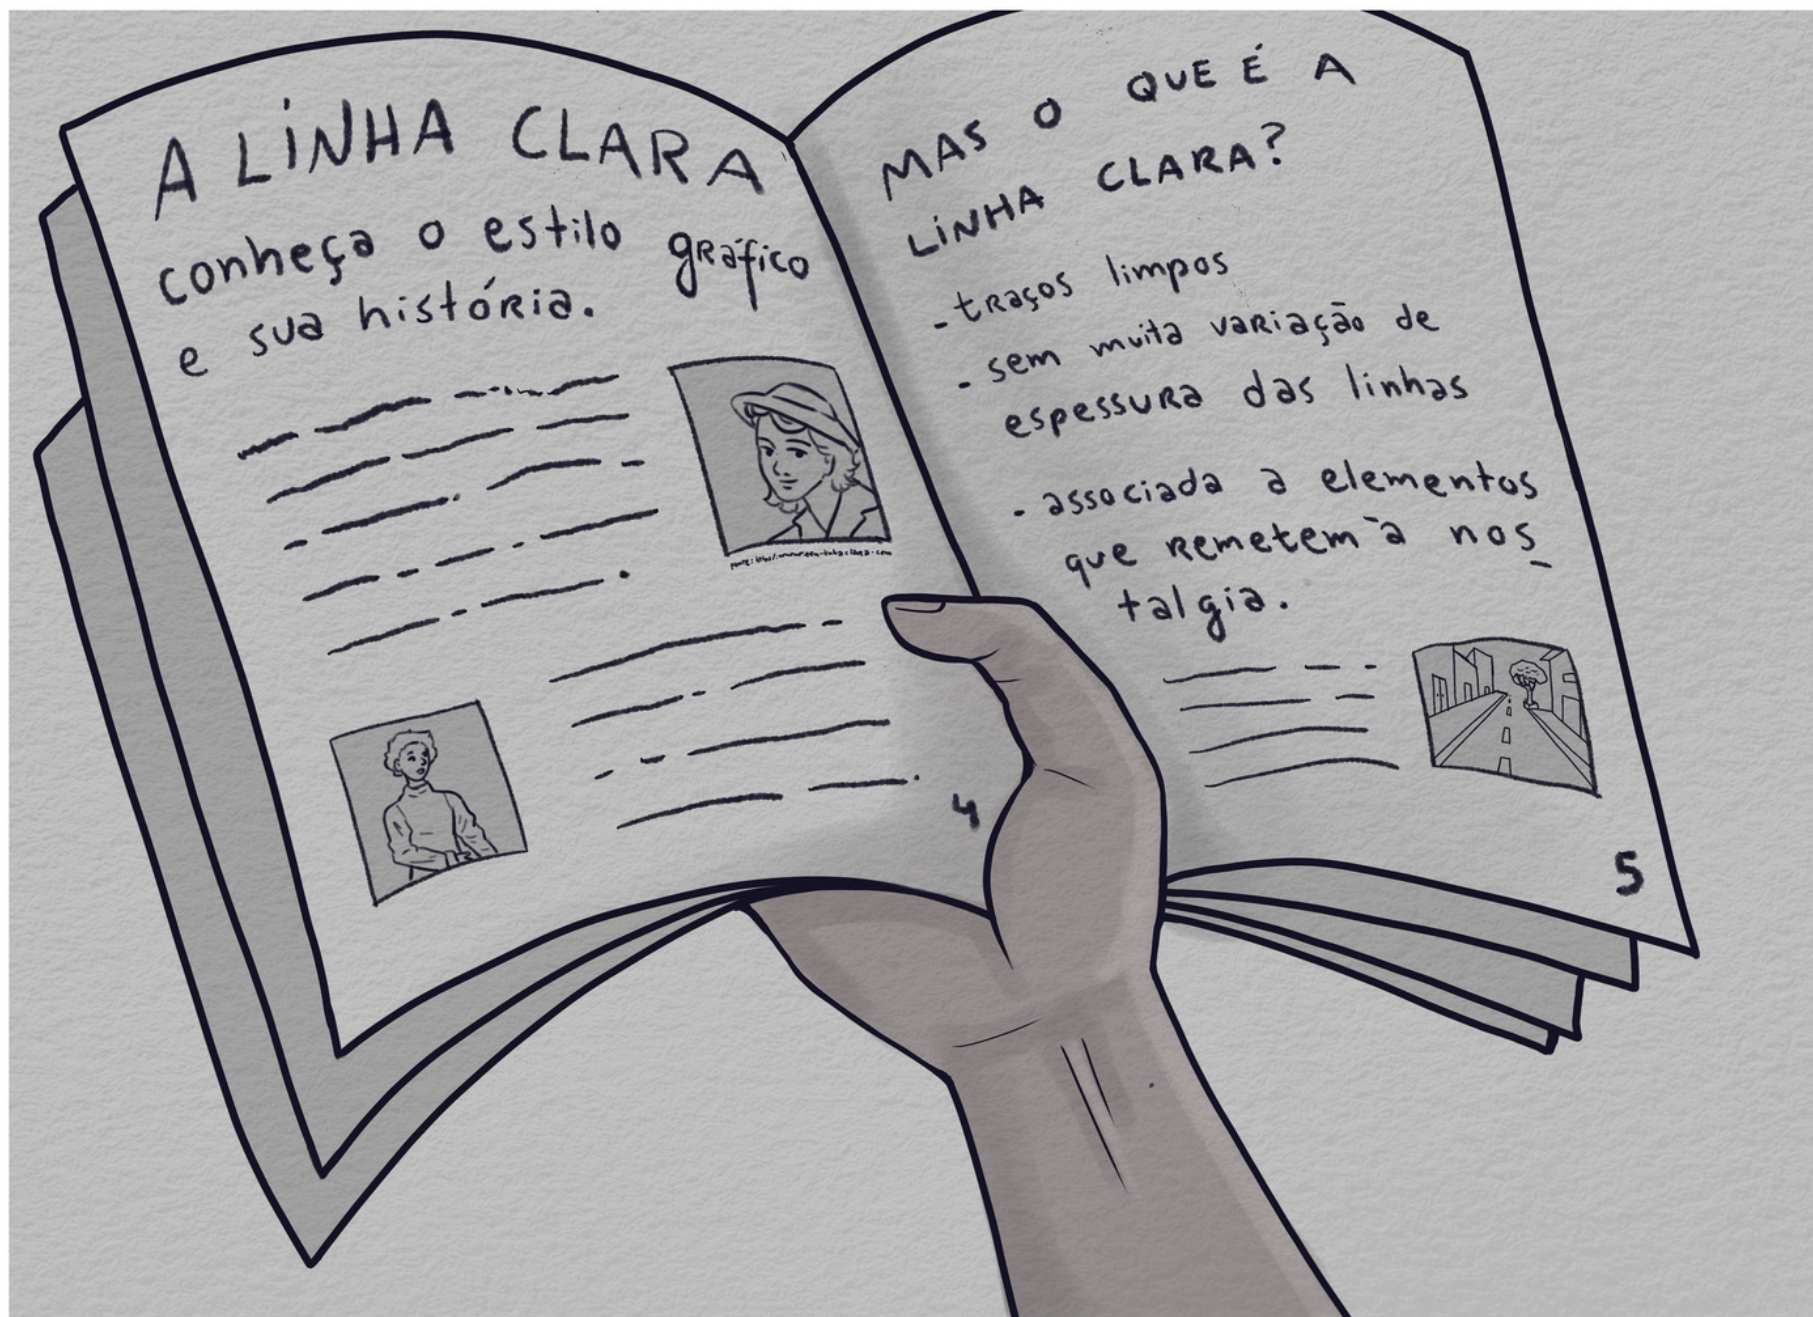 A LINHA CLARA
conheça o estilo gráfico
e sua história.
4
MAS O QUE É A
LINHA CLARA?
- traços limpos
- sem muita variação de
espessura das linhas
- associada a elementos
que remetem à nos
talgia.
5